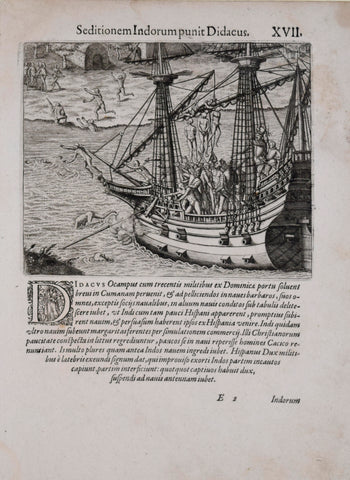 Seditionem Indorum punit Didacus. XVII.
DIDACVS Ocampus cum trecentis militibus ex Dominicæ portu soluens
brevi in Cumanam pervenit, & ad pelliciendos in naves barbaros, suos o-
mnes, exceptis socijs navalibus, in alvum navis conditos sub tabulis delite-
scere iubet, ut Indi cum tam pauci Hispani apparerent, promptius subi-
rent navim, & persuasum haberent ipsos ex Hispania venire. Indi quidam
ultro navim subeunt margaritas ferentes per simulationem commercij. Illi Christianorum
paucitate conspecta in litus regrediuntur, paucos se in navi reperisse homines Cacico re-
nuntiant. Is multo plures quam antea Indos navem ingredi iubet. Hispanus Dux militi-
bus è latebris exeundi signum dat, qui improviso exorti Indos partim incautos
capiunt, partim interficiunt: quotquot captivos habuit dux,
suspendi ad navis antennam iubet.
E 2 Indorum